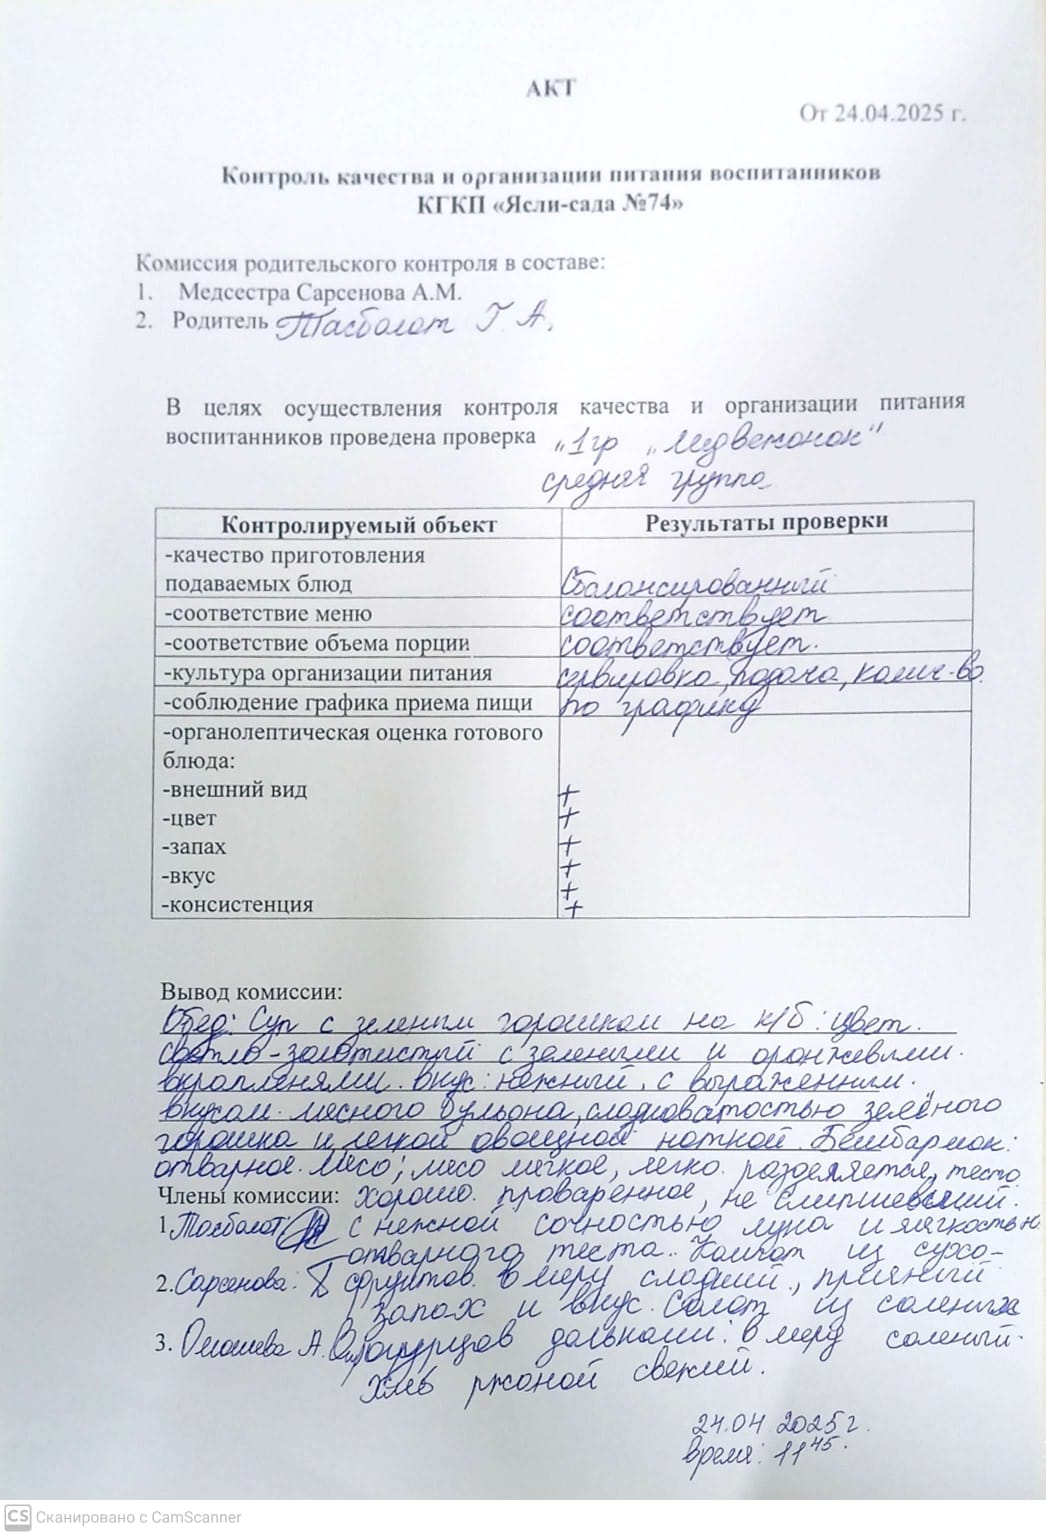 АКТ
От 24.04.2025 г.
Контроль качества и организации питания воспитанников
КГКП «Ясли-сада №74»
Комиссия родительского контроля в составе:
1. Медсестра Сарсенова А.М.
2. Родитель Тасболат Г. А.
В целях осуществления контроля качества и организации питания
воспитанников проведена проверка „1гр „Медвежонок"
средняя группа
Контролируемый объект Результаты проверки
-качество приготовления
подаваемых блюд Сбалансированный
-соответствие меню соответствует
-соответствие объема порции соответствует.
-культура организации питания сервировка, подача, колич-во.
-соблюдение графика приема пищи по графику
-органолептическая оценка готового
блюда:
-внешний вид +
-цвет +
-запах +
-вкус +
+
-консистенция +
Вывод комиссии:
Обед: Суп с зеленым горошком на к/б: цвет.
светло-золотистый с зелеными и оранжевыми.
вкраплениями. вкус: нежный, с выраженным.
вкусом. мясного бульона, сладковатостью зелёного
горошка и легкой овощной ноткой. Бешбармак:
отварное. мясо; мясо мягкое, легко. разделяется, тесто
Члены комиссии: хорошо. проваренное, не слипшееся.
1. Тасболат с нежной сочностью лука и мягкостью
отварного теста. Компот из сухо-
2. Сарсенова: фруктов. в меру сладкий, приятный
запах и вкус. Салат из соленых
3. А. огурцов дольками: в меру соленый.
Хлеб ржаной свежий.
24.04 2025 г.
время: 11 45.
CS Сканировано с CamScanner